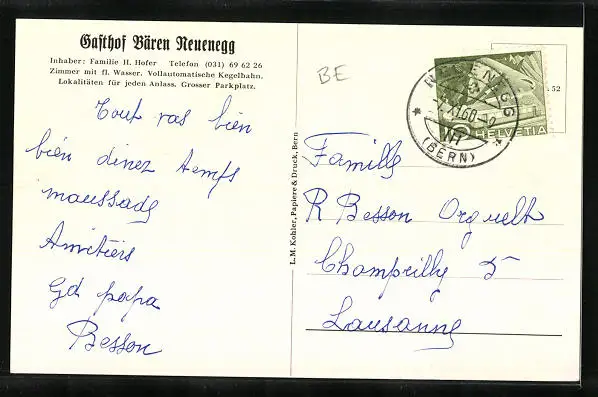 Gasthof Bären Neuenegg
Inhaber: Familie H. Hofer Telefon (031) 69 62 26
Zimmer mit fl. Wasser. Vollautomatische Kegelbahn.
Lokalitäten für jeden Anlass. Grosser Parkplatz.
Tout vas bien
bien dinez temps
maussade
Amitiers
Gd papa
Besson
L.M. Kohler, Papiere & Druck, Bern
BE
NEUENEGG
(BERN)
HELVETIA
52
Famille
R Besson
Champrilly 5
Lausanne